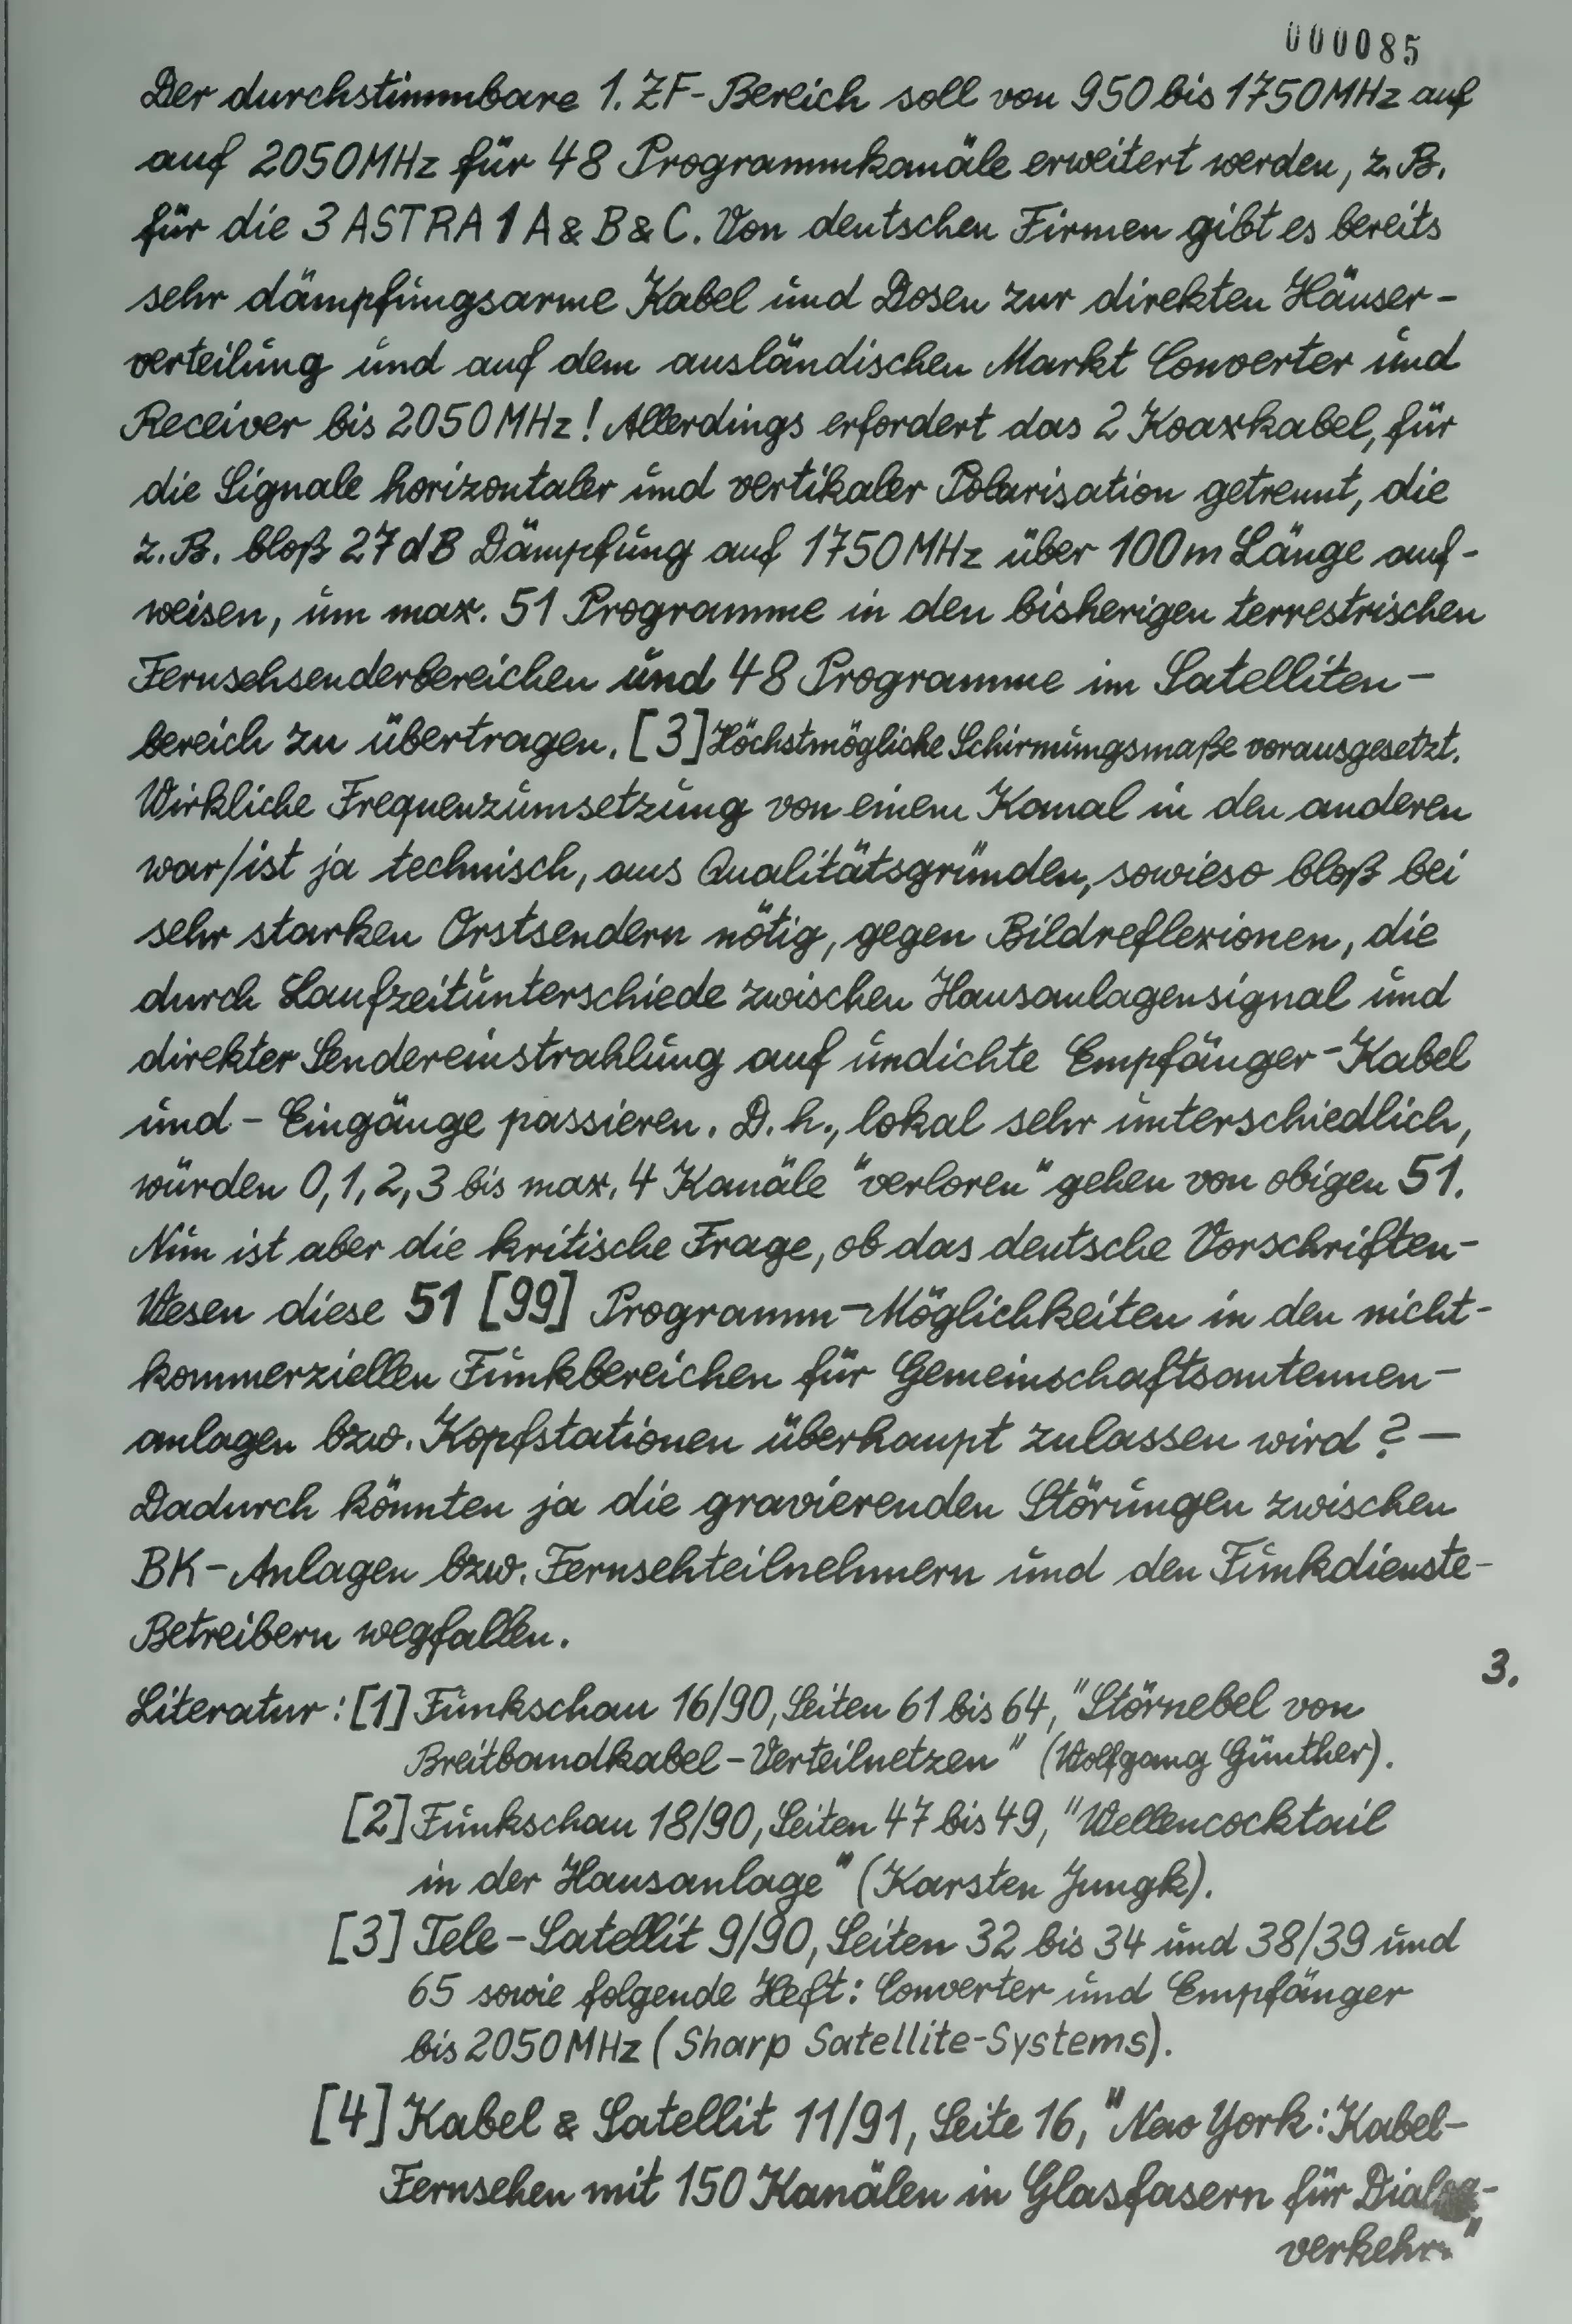 000085
Der durchstimmbare 1. ZF-Bereich soll von 950 bis 1750 MHz auf
auf 2050 MHz für 48 Programmkanäle erweitert werden, z. B.
für die 3 ASTRA 1 A & B & C. Von deutschen Firmen gibt es bereits
sehr dämpfungsarme Kabel und Dosen zur direkten Häuser-
verteilung und auf dem ausländischen Markt Converter und
Receiver bis 2050 MHz! Allerdings erfordert das 2 Koaxkabel, für
die Signale horizontaler und vertikaler Polarisation getrennt, die
z. B. bloß 27 dB Dämpfung auf 1750 MHz über 100 m Länge auf-
weisen, um max. 51 Programme in den bisherigen terrestrischen
Fernsehsenderbereichen und 48 Programme im Satelliten-
bereich zu übertragen. [3] Höchstmögliche Schirmungsmaße vorausgesetzt.
Wirkliche Frequenzumsetzung von einem Kanal in den anderen
war/ist ja technisch, aus Qualitätsgründen, sowieso bloß bei
sehr starken Orstsendern nötig, gegen Bildreflexionen, die
durch Laufzeitunterschiede zwischen Hausanlagensignal und
direkter Sendereinstrahlung auf undichte Empfänger-Kabel
und - Eingänge passieren. D. h., lokal sehr unterschiedlich,
würden 0, 1, 2, 3 bis max. 4 Kanäle "verloren" gehen von obigen 51.
Nun ist aber die kritische Frage, ob das deutsche Vorschriften-
Wesen diese 51 [99] Programm-Möglichkeiten in den nicht-
kommerziellen Funkbereichen für Gemeinschaftsantennen-
anlagen bzw. Kopfstationen überhaupt zulassen wird? —
Dadurch könnten ja die gravierenden Störungen zwischen
BK-Anlagen bzw. Fernsehteilnehmern und den Funkdienste-
Betreibern wegfallen.
3.
Literatur: [1] Funkschau 16/90, Seiten 61 bis 64, "Störnebel von
Breitbandkabel-Verteilnetzen" (Wolfgang Günther).
[2] Funkschau 18/90, Seiten 47 bis 49, "Wellencocktail
in der Hausanlage" (Karsten Jungk).
[3] Tele-Satellit 9/90, Seiten 32 bis 34 und 38/39 und
65 sowie folgende Heft: Converter und Empfänger
bis 2050 MHz (Sharp Satellite-Systems).
[4] Kabel & Satellit 11/91, Seite 16, "New York: Kabel-
Fernsehen mit 150 Kanälen in Glasfasern für Dialog-
verkehr."